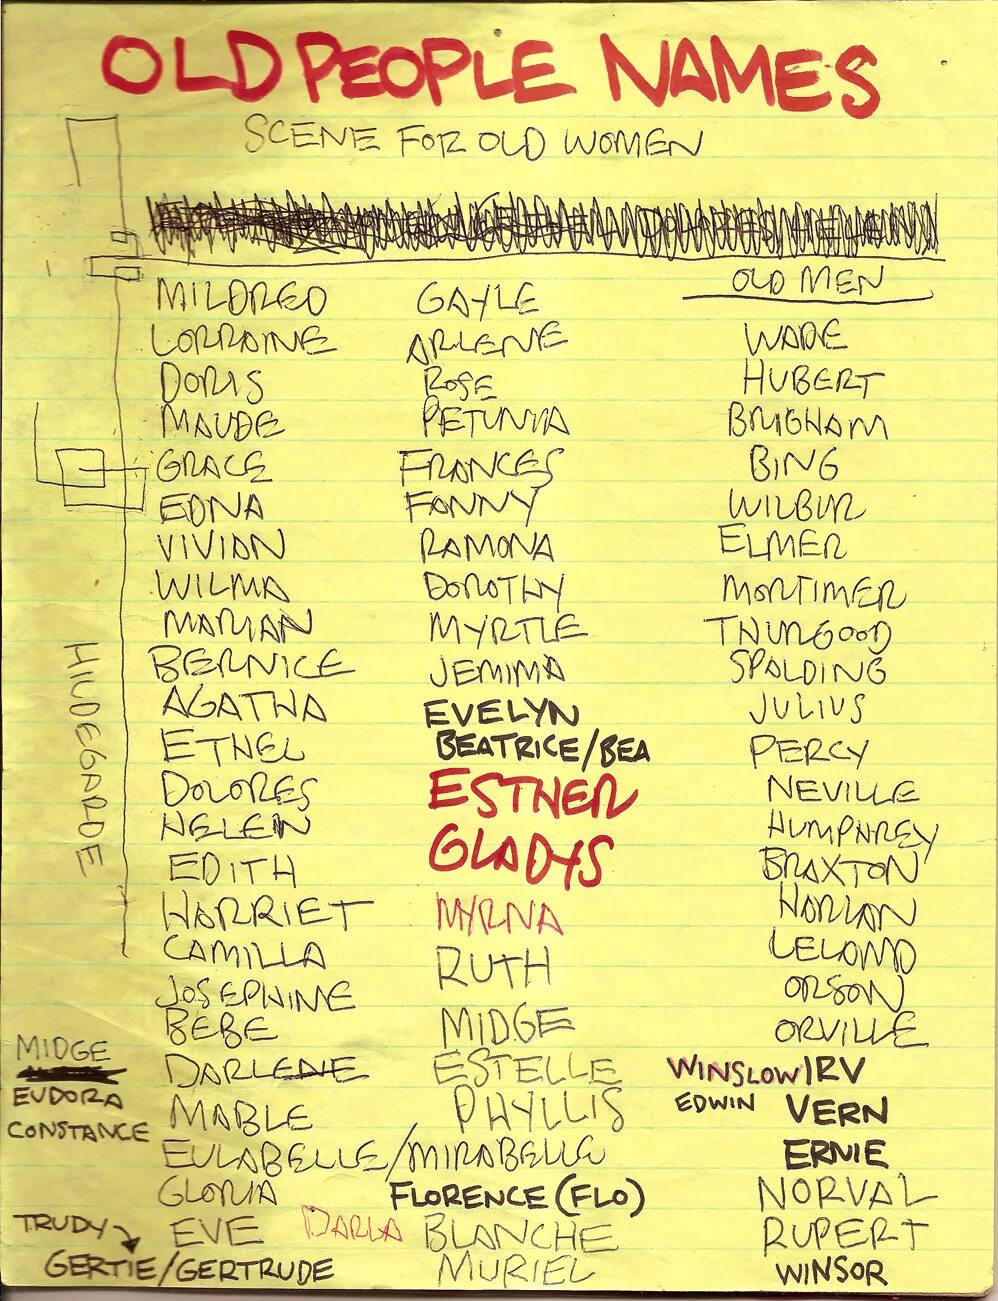 OLD PEOPLE NAMES
SCENE FOR OLD WOMEN
MILDRED
LORRAINE
DORIS
MAUDE
GRACE
EDNA
VIVIAN
WILMA
MARIAN
BERNICE
AGATHA
ETHEL
DOLORES
HELEN
EDITH
HARRIET
CAMILLA
JOSEPHINE
BEBE
DARLENE
MABLE
EULABELLE/MIRABELLE
GLORIA
EVE
DARLA
GERTIE/GERTRUDE
TRUDY
HILDEGARDE
MIDGE
EUDORA
CONSTANCE
GAYLE
ARLENE
ROSE
PETUNIA
FRANCES
FANNY
RAMONA
DOROTHY
MYRTLE
JEMIMA
EVELYN
BEATRICE/BEA
ESTHER
GLADYS
MYRNA
RUTH
MIDGE
ESTELLE
PHYLLIS
FLORENCE (FLO)
BLANCHE
MURIEL
OLD MEN
WADE
HUBERT
BRIGHAM
BING
WILBUR
ELMER
MORTIMER
THURGOOD
SPALDING
JULIUS
PERCY
NEVILLE
HUMPHREY
BRAXTON
HARLAN
LELAND
ORSON
ORVILLE
WINSLOW
IRV
EDWIN
VERN
ERNIE
NORVAL
RUPERT
WINSOR